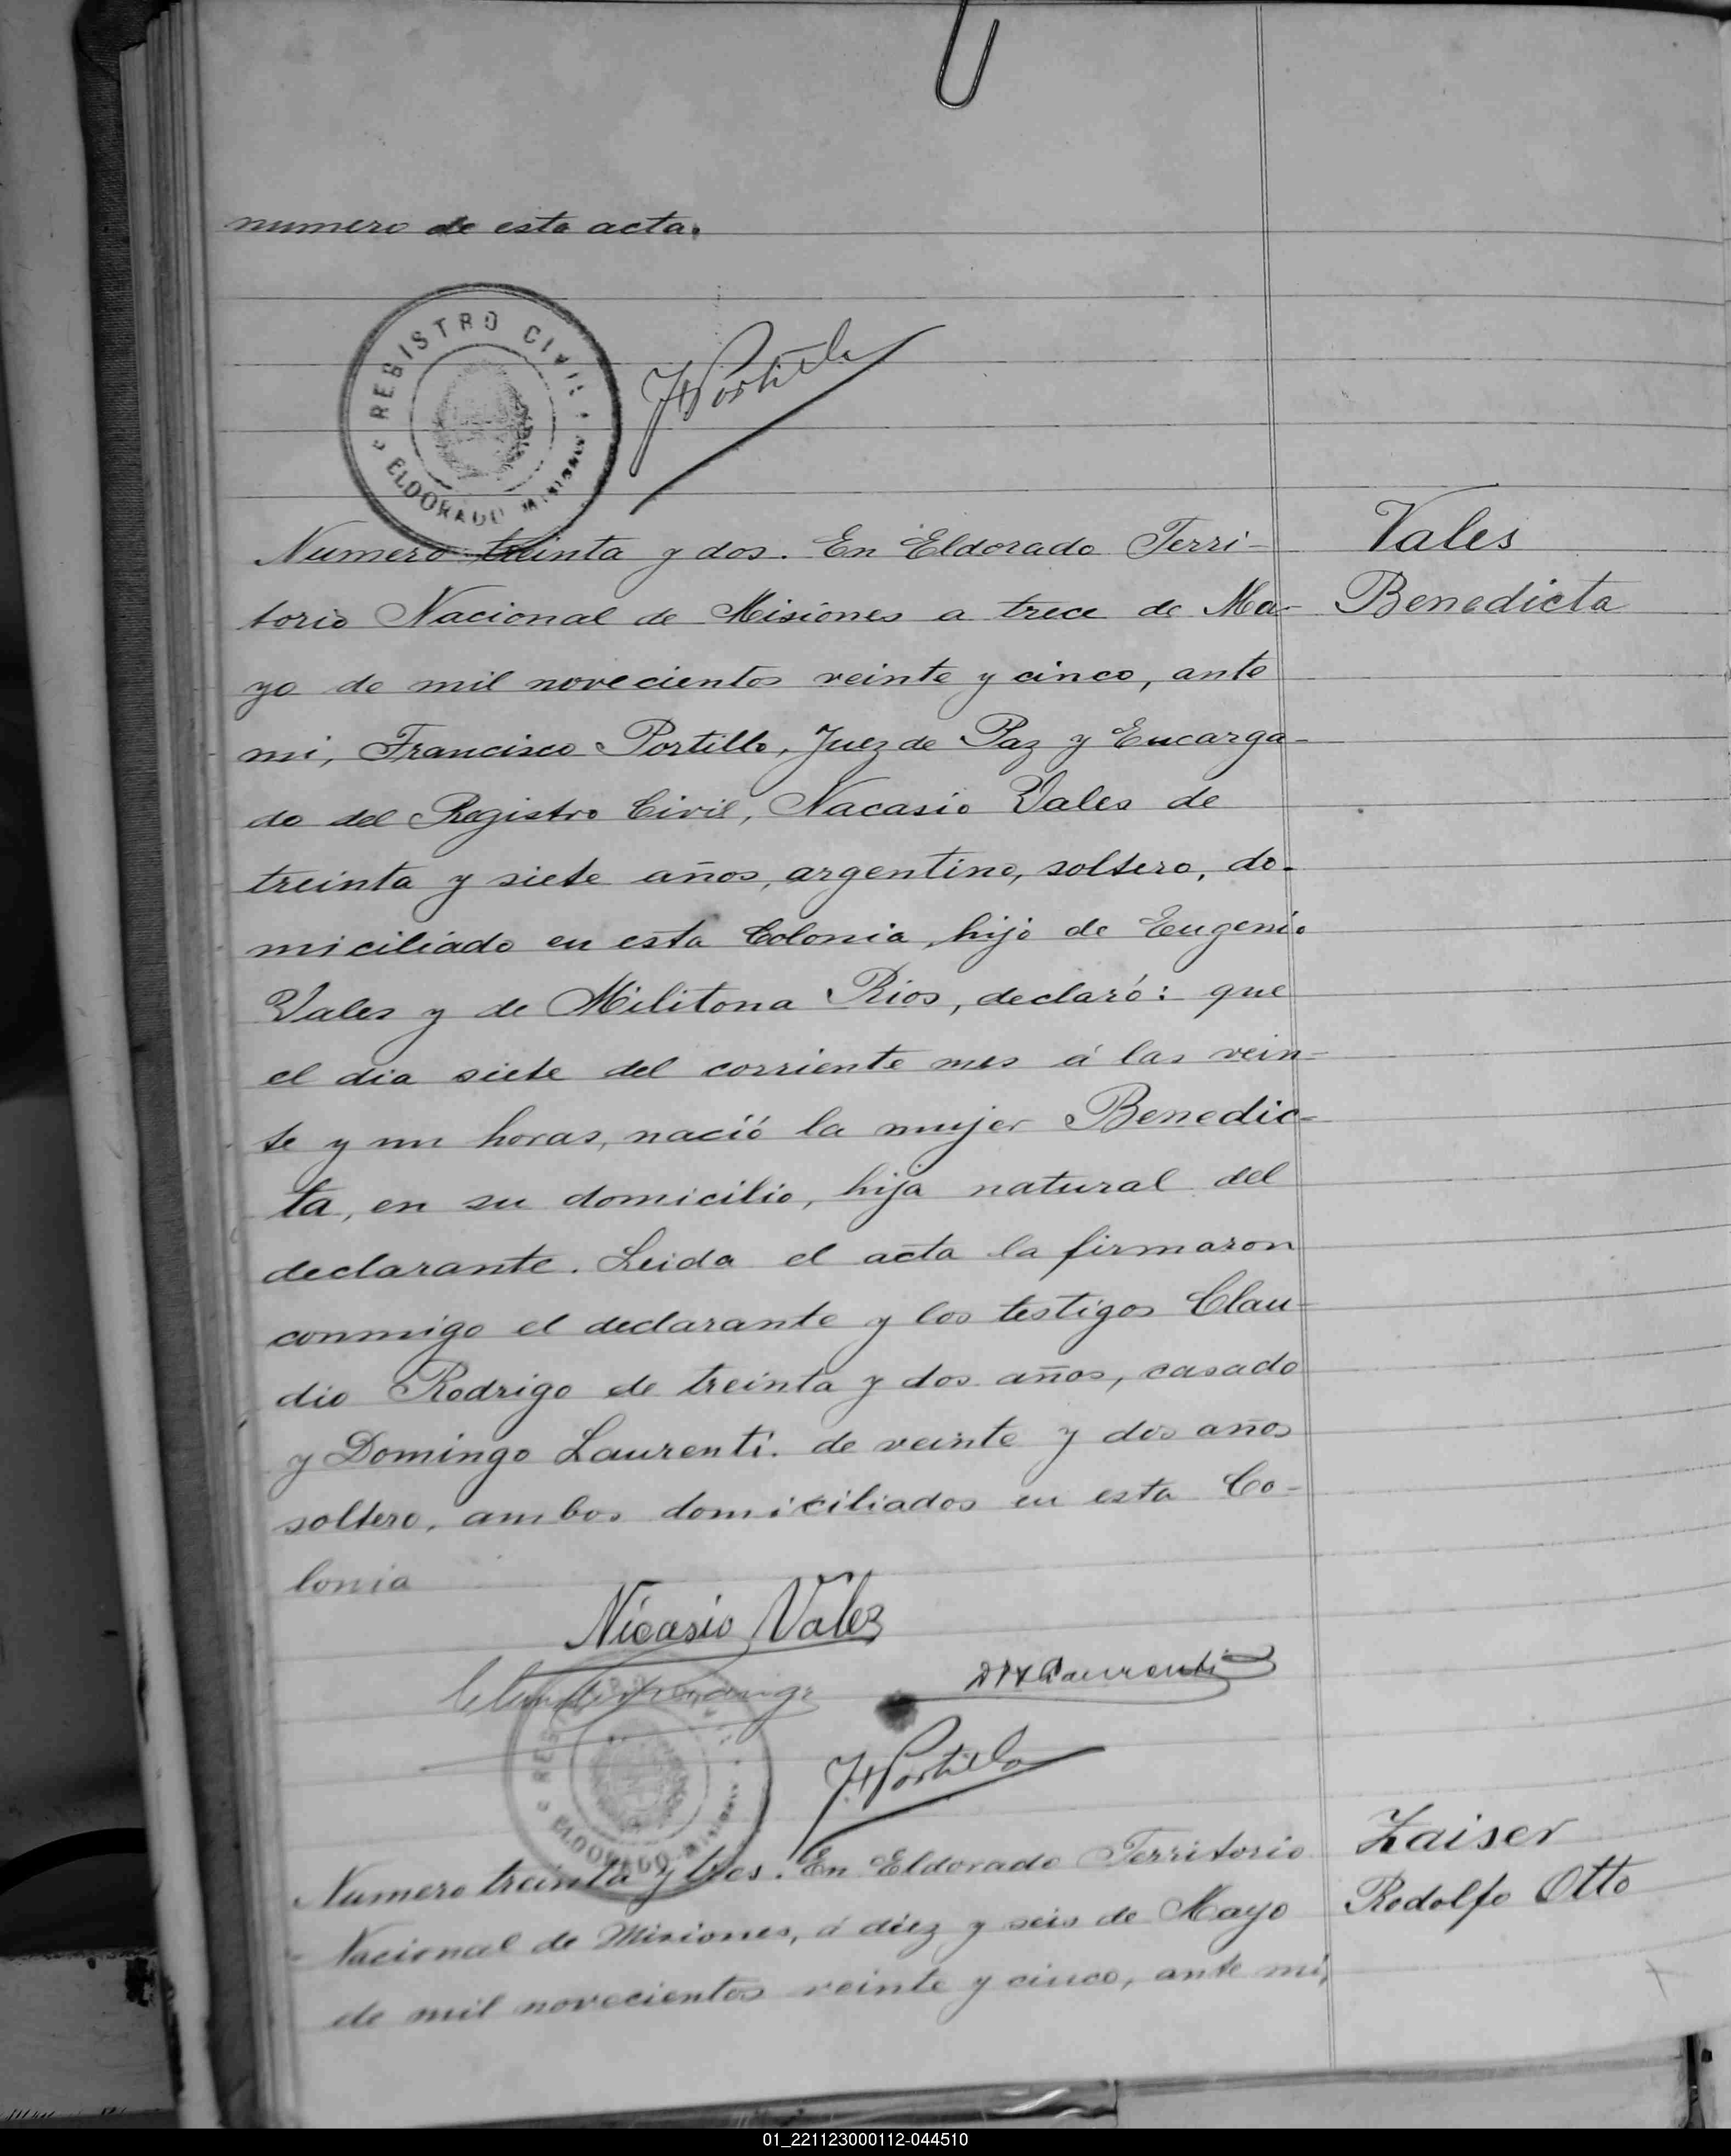 numero de esta acta.
REGISTRO CIVIL
ELDORADO MISIONES
FPortillo
Numero treinta y dos. En Eldorado Terri-
Vales
torio Nacional de Misiones a trece de Ma-
Benedicta
yo de mil novecientos veinte y cinco, ante
mi, Francisco Portillo, Juez de Paz y Encarga-
do del Registro Civil, Nacasio Vales de
treinta y siete años, argentino, soltero, do-
miciliado en esta Colonia, hijo de Eugenio
Vales y de Militona Rios, declaró: que
el dia siete del corriente mes á las vein-
te y un horas, nació la mujer Benedic-
ta, en su domicilio, hija natural del
declarante. Leida el acta la firmaron
conmigo el declarante y los testigos Clau-
dio Rodrigo de treinta y dos años, casado
y Domingo Laurenti. de veinte y dos años
soltero, ambos domiciliados en esta Co-
lonia
Nicasio Valez
Laurenti
FPortillo
ELDORADO MISIONES
Numero treinta y tres. En Eldorado Territorio
Zaiser
Nacional de Misiones, á diez y seis de Mayo
Rodolfo Otto
de mil novecientos veinte y cinco, ante mi,
01_221123000112-044510